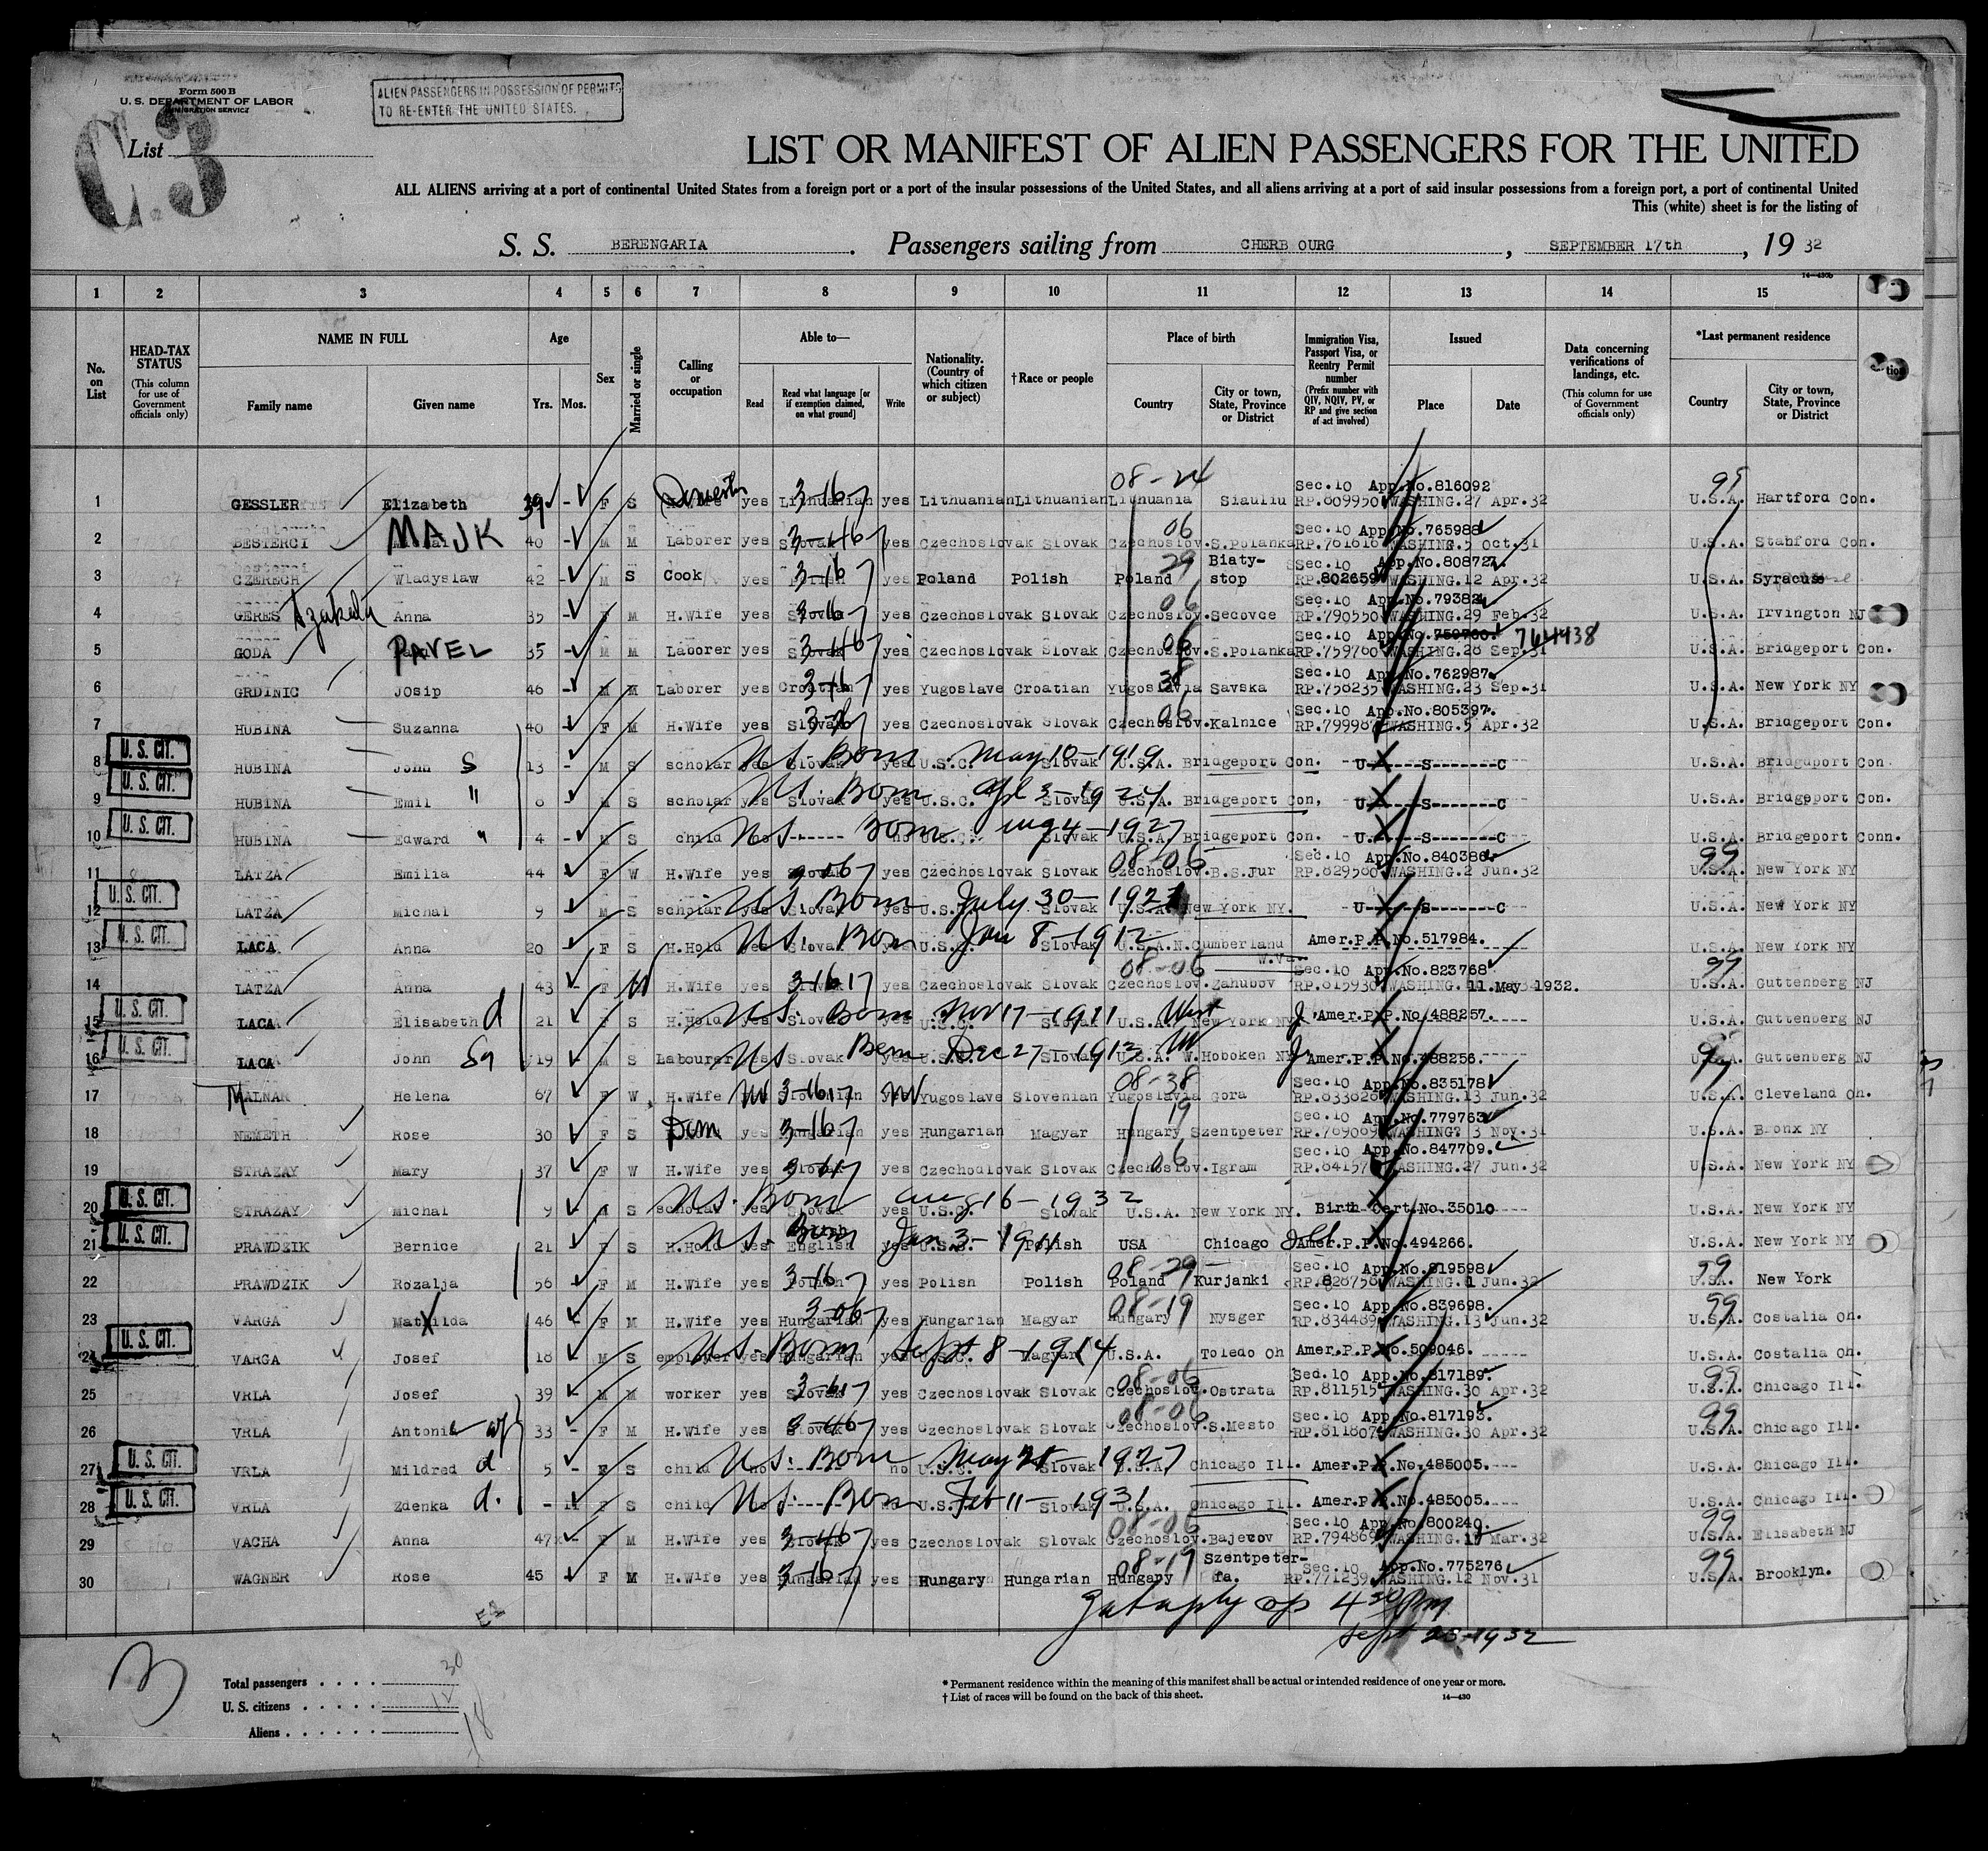 Form 500 B
U. S. DEPARTMENT OF LABOR
IMMIGRATION SERVICE
ALIEN PASSENGERS IN POSSESSION OF PERMITS
TO RE-ENTER THE UNITED STATES.
C.3
List
LIST OR MANIFEST OF ALIEN PASSENGERS FOR THE UNITED
ALL ALIENS arriving at a port of continental United States from a foreign port or a port of the insular possessions of the United States, and all aliens arriving at a port of said insular possessions from a foreign port, a port of continental United
This (white) sheet is for the listing of
S. S. BERENGARIA. Passengers sailing from CHERB OURG, SEPTEMBER 17th, 19 32
14—430b
1 2 3 4 5 6 7 8 9 10 11 12 13 14 15
No. on List
HEAD-TAX STATUS (This column for use of Government officials only)
NAME IN FULL
Family name Given name
Age
Yrs. Mos.
Sex
Married or single
Calling or occupation
Able to—
Read Read what language [or if exemption claimed, on what ground] Write
Nationality. (Country of which citizen or subject)
† Race or people
Place of birth
Country City or town, State, Province or District
Immigration Visa, Passport Visa, or Reentry Permit number (Prefix number with QIV, NQIV, PV, or RP and give section of act involved)
Issued
Place Date
Data concerning verifications of landings, etc. (This column for use of Government officials only)
*Last permanent residence
Country City or town, State, Province or District
1 GESSLER Elizabeth 39 - F S H.Wife yes Lithuanian 3-167 yes Lithuanian Lithuanian Lithuania 08-24 Siauliu Sec.10 App.No.816092 RP.809950 WASHING.27 Apr.32 99 U.S.A. Hartford Con.
2 BESTERCI MAJK 40 - M M Laborer yes Slovak yes Czechoslovak Slovak Czechoslov. 06 S.Polanka Sec.10 App.No.765988 RP.761616 WASHING.5 Oct.31 U.S.A. Stabford Con.
3 CZERECH Wladyslaw 42 - M S Cook yes 3-167 yes Poland Polish Poland 29 Biaty-stop Sec.10 App.No.80872 RP.802659 WASHING.12 Apr.32 U.S.A. Syracuse
4 GERES Anna 35 - F M H.Wife yes Slovak 3-167 yes Czechoslovak Slovak Czechoslov. 06 Secovce Sec.10 App.No.79382 RP.790550 WASHING.29 Feb.32 U.S.A. Irvington NJ
5 GODA PAVEL 35 - M M Laborer yes Slovak yes Czechoslovak Slovak Czechoslov. 06 S.Polanka Sec.10 App.No.759760. 764438 RP.759760 WASHING.28 Sep.31 U.S.A. Bridgeport Con.
6 GRDINIC JOsip 46 - M M Laborer yes Croatian 3-167 yes Yugoslave Croatian Yugoslavia 38 Savska Sec.10 App.No.762987. RP.758235 WASHING.23 Sep.31 U.S.A. New York NY
7 HUBINA Suzanna 40 - F M H.Wife yes Slovak yes Czechoslovak Slovak Czechoslov. 06 Kalnice Sec.10 App.No.805397. RP.79998 WASHING.5 Apr.32 U.S.A. Bridgeport Con.
U. S. CIT. 8 HUBINA John S 13 - M S scholar yes Slovak yes U.S.C. US. Born May 18-1919 Slovak U.S.A. Bridgeport Con. U-----S-------C U.S.A. Bridgeport Con
U. S. CIT. 9 HUBINA Emil " 8 - M S scholar yes Slovak yes U.S.C. US. Born Apl 3-1924 Slovak U.S.A. Bridgeport Con, U-----S-------C U.S.A. Bridgeport Con.
U. S. CIT. 10 HUBINA Edward " 4 - M S child no ----- no U.S.C. US. Born Aug 4-1927 Slovak U.S.A. Bridgeport Con. U-----S-------C U.S.A. Bridgeport Conn.
11 LATZA Emilia 44 F W H.Wife yes Slovak yes Czechoslovak Slovak Czechoslov. 08-06 B.S.Jur Sec.10 App.No.840386. RP.829580 WASHING.2 Jun.32 99 U.S.A. New York NY
U. S. CIT. 12 LATZA Michal 9 M S scholar yes Slovak yes U.S.C. US. Born July 30-192 Slovak U.S.A. New York NY. U-----S-------C U.S.A. New York NY
U. S. CIT. 13 LACA Anna 20 - F S H.Hold yes Slovak yes U.S.C. US. Born Jan 8-1912 Slovak U.S.A. N.Cumberland W.Va. Amer.P.P.No.517984. U.S.A. New York NY
14 LATZA Anna 43 - F W H.Wife yes Slovak yes Czechoslovak Slovak Czechoslov. 08-06 Zahubov Sec.10 App.No.823768 RP.815930 WASHING. 11.May 1932. 99 U.S.A. Guttenberg NJ
U. S. CIT. 15 LACA Elisabeth d 21 - F S H.Hold yes Slovak yes U.S.C. US. Born Nov 17-1911 Slovak U.S.A. West New York NY Amer.P.P.No.488257. U.S.A. Guttenberg NJ
U. S. CIT. 16 LACA John 19 - M S Labourer yes Slovak yes U.S.C. US Born Dec 27-1913 Slovak U.S.A. W.Hoboken NJ Amer.P.P.No.488256. U.S.A. Guttenberg NJ
17 MALNAR Helena 67 F W H.Wife yes Slovenian Yugoslave Slovenian Yugoslavia 08-38 Gora Sec.10 App.No.835178 RP.833826 WASHING.13 Jun.32 U.S.A. Cleveland Oh.
18 NEMETH Rose 30 F S Dom yes Hungarian 3-167 yes Hungarian Magyar Hungary 19 Szentpeter Sec.10 App.No.779763. RP.769069 WASHING. 3 Nov.31 U.S.A. Bronx NY
19 STRAZAY Mary 37 F W H.Wife yes Slovak yes Czechoulovak Slovak Czechoslov. 06 Igram Sec.10 App.No.847709. RP.84157 WASHING.27 Jun.32 U.S.A. New York NY
U. S. CIT. 20 STRAZAY Michal 9 - M S scholar yes Slovak yes U.S.C. US. Born Aug 16-1932 Slovak U.S.A. New York NY. Birth Cert.No.35010 U.S.A. New York NY
U. S. CIT. 21 PRAWDZIK Bernice 21 - F S H.Hold yes English yes U.S.C. US. Born Jan 3-1911 Polish USA Chicago Ill Amer.P.P.No.494266. U.S.A. New York NY
22 PRAWDZIK Rozalja 56 - F M H.Wife yes Polish 3-167 yes Polish Polish Poland 08-29 Kurjanki Sec.10 App.No.819598 RP.828758 WASHING.1 Jun.32 99 U.S.A. New York
23 VARGA Matilda 46 - F M H.Wife yes Hungarian 3-067 yes Hungarian Magyar Hungary 08-19 Nysger Sec.10 App.No.839698. RP.834489 WASHING.13 Jun.32 99 U.S.A. Costalia Oh.
U. S. CIT. 24 VARGA Josef 18 - M S employer yes Hungarian yes U.S.C. US. Born Sept 8-1914 Magyar U.S.A. Toledo Oh Amer.P.P.No.509046. U.S.A. Costalia Oh.
25 VRLA Josef 39 - M M worker yes Slovak yes Czechoslovak Slovak Czechoslov. 08-06 Ostrata Sec.10 App.No.817189. RP.811515 WASHING.30 Apr.32 99 U.S.A. Chicago Ill.
26 VRLA Antonia wf 33 - F M H.Wife yes Slovak yes Czechoslovak Slovak Czechoslov. 08-06 S.Mesto Sec.10 App.No.817193. RP.811807 WASHING.30 Apr.32 99 U.S.A. Chicago Ill.
U. S. CIT. 27 VRLA Mildred d 5 - F S child no no U.S.C. US. Born May 21-1927 Slovak U.S.A. Chicago Ill. Amer.P.P.No.485005. U.S.A. Chicago Ill.
U. S. CIT. 28 VRLA Zdenka d. - F S child US. Born Feb 11-1931 U.S.C. Slovak U.S.A. Chicago Ill. Amer.P.P.No.485005. U.S.A. Chicago Ill.
29 VACHA Anna 47 - F M H.Wife yes Slovak yes Czechoslovak Slovak Czechoslov. 08-06 Bajecov Sec.10 App.No.800240. RP.794869 WASHING.1 Mar.32 99 U.S.A. Elisabeth NJ
30 WAGNER Rose 45 F M H.Wife yes Hungarian 3-167 yes Hungary Hungarian Hungary 08-19 Szentpeter-fa. Sec.10 App.No.775276 RP.771239 WASHING.12 Nov.31 99 U.S.A. Brooklyn.
4 30 Pm
Sept 23-1932
Total passengers . . . . 30
U. S. citizens . . . . . 12
Aliens . . . . . . 18
* Permanent residence within the meaning of this manifest shall be actual or intended residence of one year or more.
† List of races will be found on the back of this sheet.
14—430